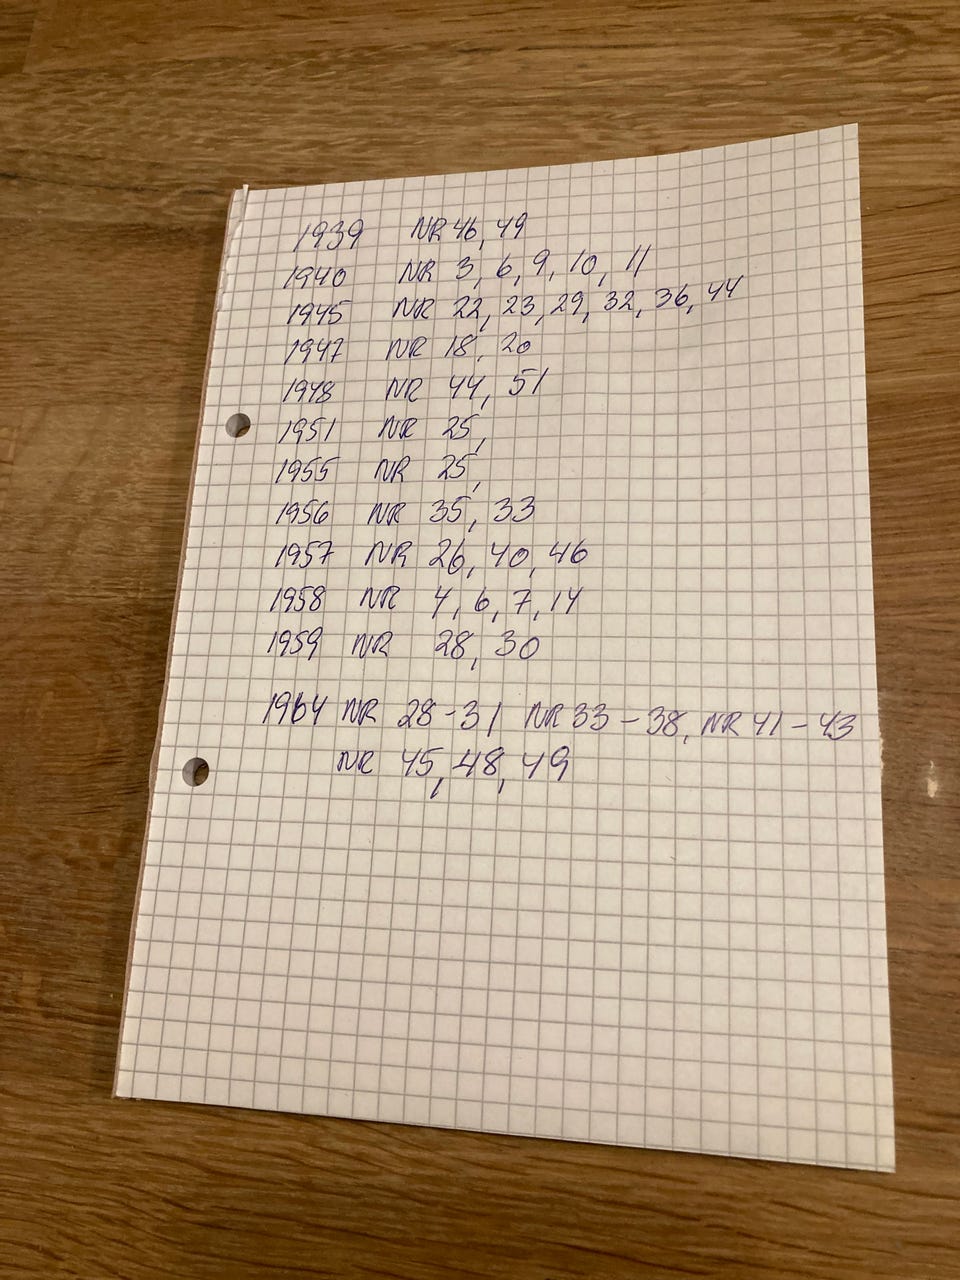 1939 NR 46, 49
1940 NR 3, 6, 9, 10, 11
1945 NR 22, 23, 29, 32, 36, 44
1947 NR 18, 20
1948 NR 44, 51
1951 NR 25,
1955 NR 25,
1956 NR 35, 33
1957 NR 26, 40, 46
1958 NR 4, 6, 7, 14
1959 NR 28, 30
1964 NR 28-31 NR 33-38, NR 41-43
NR 45, 48, 49